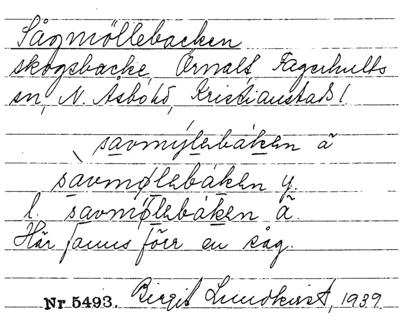 Sågmöllebacken
skogsbacke, Örnalt, Fagerhults
sn, N. Åsbo hd, Kristianstads l.
savmýlebáken ä
sàvmølebáken y.
l. savmølebáken ä.
Här fanns förr en såg.
Nr 5493. Birgit Lundkvist, 1939.